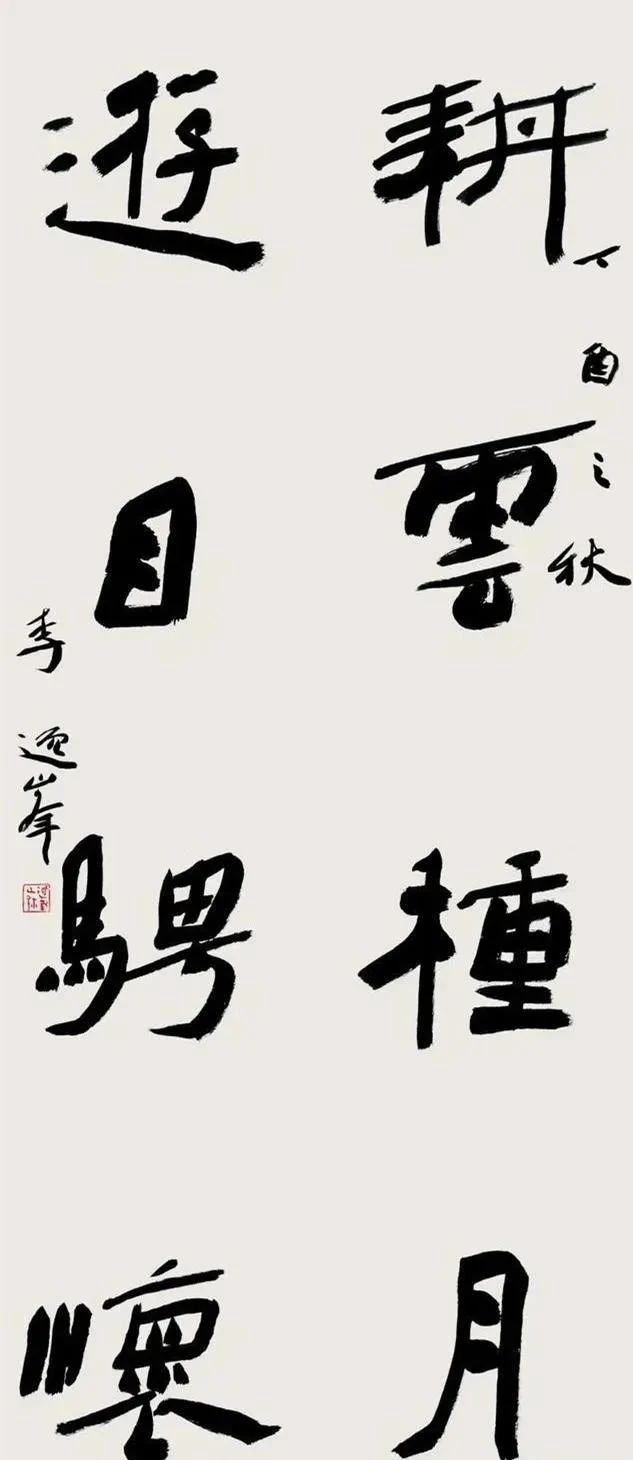 耕雲種月
遊目騁懷
丁酉之秋
李逸峯